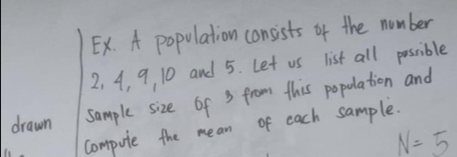 Ex. A population consists of the number
2, 4, 9, 10 and 5. Let us list all possible
sample size of 3 from this population and
drawn
compute the mean of each sample.
N = 5